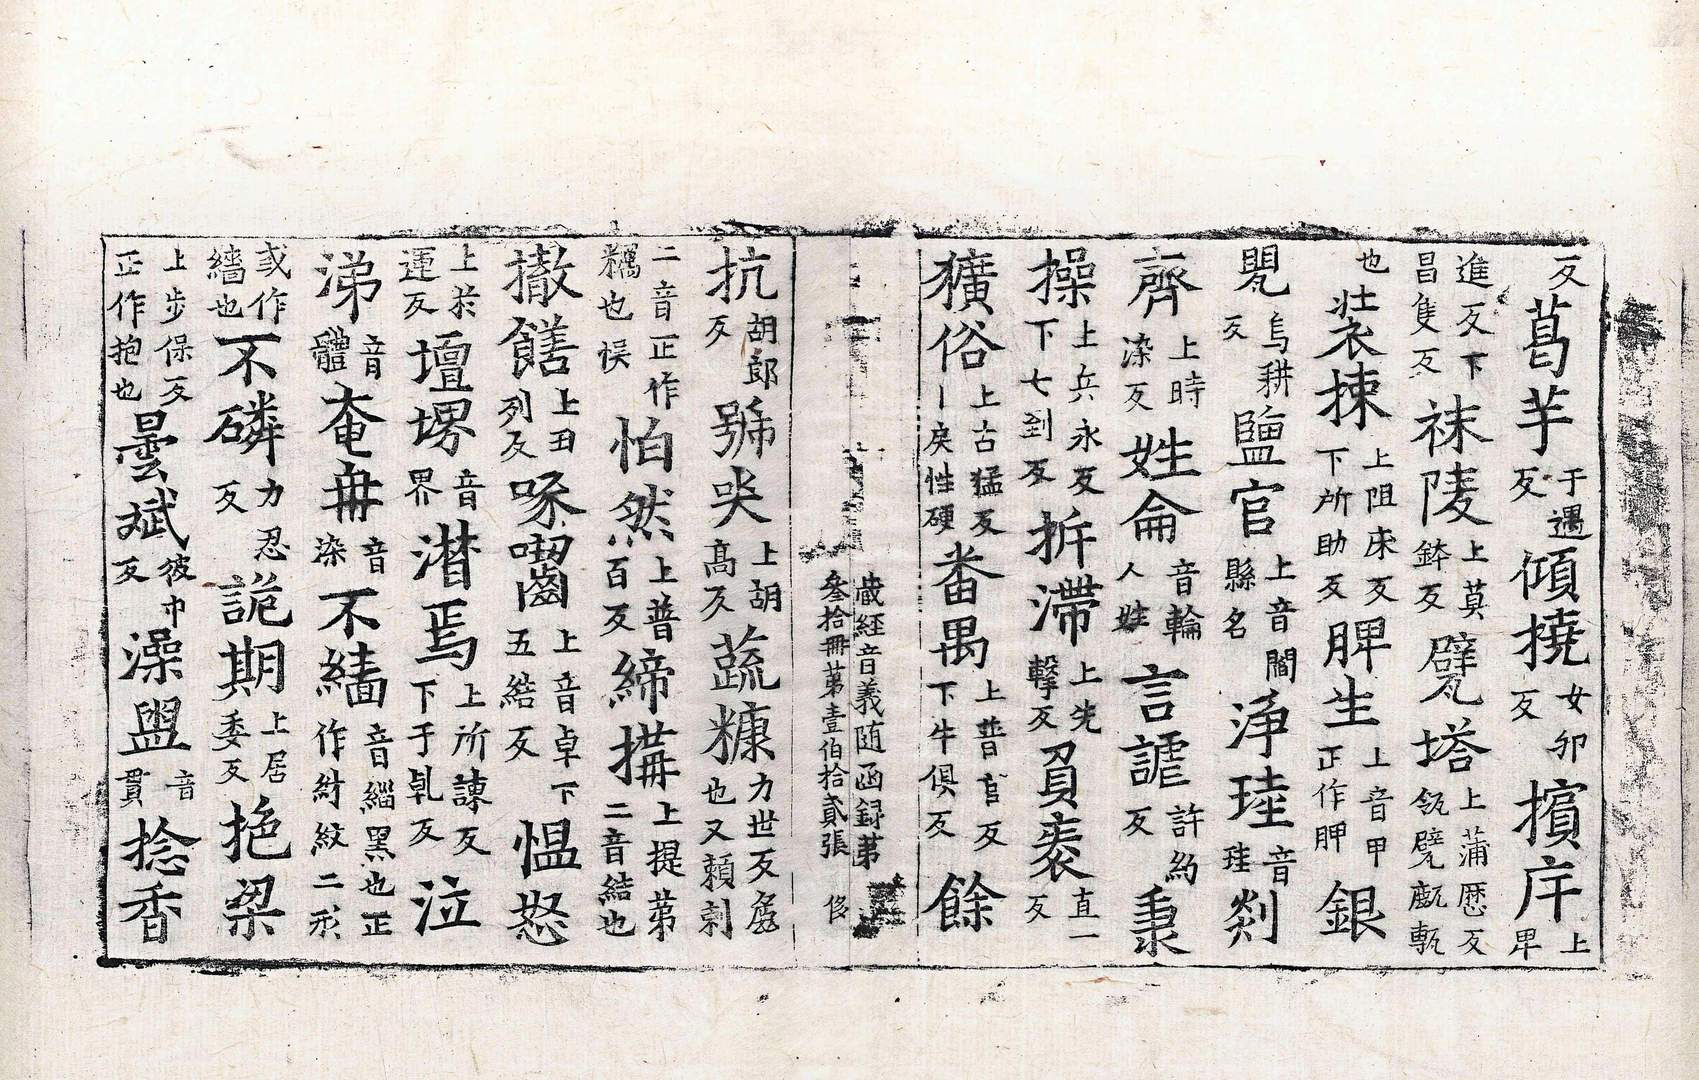 反葛羊于遇反傾撓女卯反擯庌上卑
進反下昌隻反袜陵上莫鉢反甓塔上蒲歴反瓴甓甋甎
也裝揀上阻床反下所助反脾生上音甲正作胛銀
甖烏耕反鹽官上音閻縣名淨珪音珪剡
齊上時染反姓侖音輪人姓言謔許約反秉
操上兵永反下七到反折滯上先擊反負袠直一反
獷俗上古猛反丨戾性硬番禺上普官反下牛俱反餘
藏經音義随函録第
叄拾冊第壹伯拾貳張 侈
抗胡郎反號哭上胡高反蔬糠力世反麁也又賴剌
二音正作糲也悮怕然上普百反締搆上提第二音結也
撤饍上丑列反啄齧上音卓下五結反愠怒
上於運反壇堺音界潸焉上所諫反下于乹反泣
涕音體奄冉音染不緇音緇黑也正作紂紋二形
或作繬也不磷力忍反詭期上居委反抱梁
上步保反正作抱也曇斌彼巾反澡盥音貫捻香